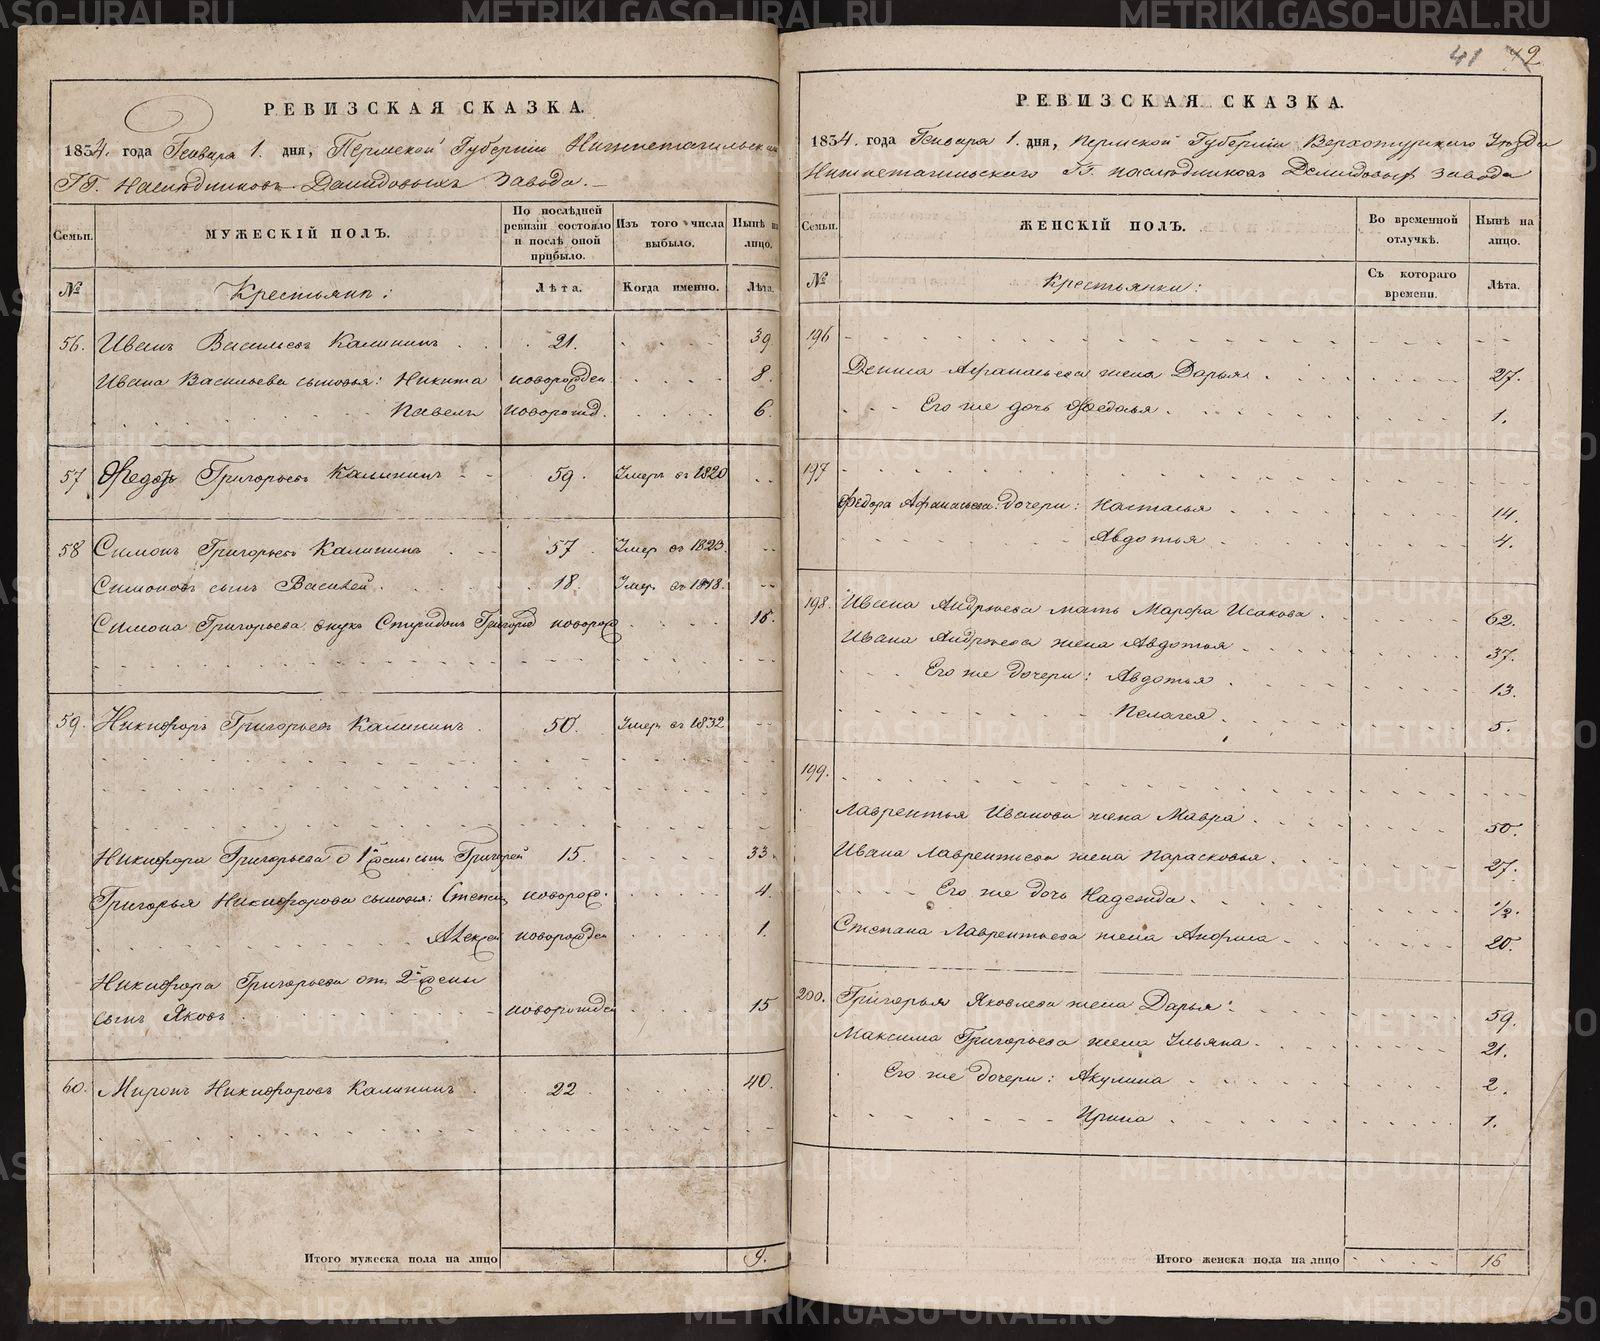 РЕВИЗСКАЯ СКАЗКА.
1834. года Генваря 1. дня, Пермской Губернiи Нижнетагильскаго
ГГ. Наслѣдниковъ Демидовыхъ завода.
Семьи.
МУЖЕСКIЙ ПОЛЪ.
По послѣдней ревизiи состояло и послѣ оной прибыло.
Изъ того числа выбыло.
Нынѣ на лицо.
№
Крестьяне:
Лѣта.
Когда именно.
Лѣта.
56. Иванъ Васильевъ Калининъ 21. 39
Ивана Васильева сыновья: Никита новорожден 8.
Павелъ новорожд. 6.
57 Федоръ Григорьевъ Калининъ 59. Умеръ въ 1820
58 Симонъ Григорьевъ Калининъ 57 Умер въ 1823.
Симоновъ сынъ Василей 18. Умер въ 1818.
Симона Григорьева внукъ Спиридонъ Григорьев новорож 15.
59. Никифоръ Григорьевъ Калининъ 50. Умер въ 1832
Никифора Григорьева о 1й жены сынъ Григорей 15. 33.
Григорья Никифорова сыновья: Степан новорож. 4
Алексей новорожден 1.
Никифора Григорьева от 2й жены
сынъ Яковъ новорожден 15
60. Миронъ Никифоровъ Калининъ 22 40.
Итого мужеска пола на лицо 9.
41 42
РЕВИЗСКАЯ СКАЗКА.
1834. года Генваря 1. дня, Пермской Губернiи Верхотурскаго Уѣзда
Нижнетагильскаго ГГ. наслѣдниковъ Демидовых завода
Семьи.
ЖЕНСКIЙ ПОЛЪ.
Во временной отлучкѣ.
Нынѣ на лицо.
№
Крестьянки:
Съ котораго времени.
Лѣта.
196
Дениса Афанасьева жена Дарья 27.
Его же дочь Федосья 1.
197
Федора Афанасьева: дочери: Настасья 14.
Авдотья 4.
198. Ивана Андреева мать Марфа Исакова 62.
Ивана Андреева жена Авдотья 37.
Его же дочери: Авдотья 13.
Пелагея 5.
199.
Лаврентья Иванова жена Мавра 50.
Ивана Лаврентьева жена Парасковья 27.
Его же дочь Надежда 1/2.
Степана Лаврентьева жена Анфиса 20.
200. Григорья Яковлева жена Дарья 59.
Максима Григорьева жена Ульяна 21.
Его же дочери: Акулина 2.
Ирина 1.
Итого женска пола на лицо 16
METRIKI.GASO-URAL.RU